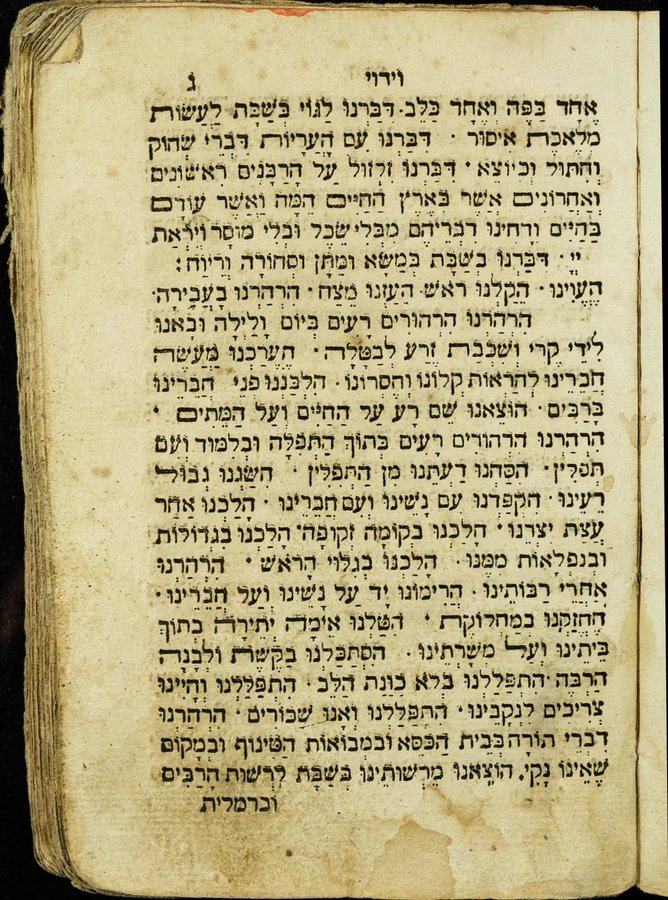 וידוי ג
אֶחָד בַּפֶּה וְאֶחָד בַּלֵּב. דִּבַּרְנוּ לַגּוֹי בְּשַׁבָּת לַעֲשׂוֹת
מְלֶאכֶת אִיסוּר · דִּבַּרְנוּ עִם הָעֲרָיוֹת דִּבְרֵי שְׂחוֹק
וְהִתּוּל וְכַיּוֹצֵא · דִּבַּרְנוּ זִלְזוּל עַל הָרַבָּנִים רִאשׁוֹנִים
וְאַחֲרוֹנִים אֲשֶׁר בְּאֶרֶץ הַחַיִּים הֵמָּה וַאֲשֶׁר עוֹדָם
בַּחַיִּים וְדָחִינוּ דִבְרֵיהֶם מִבְּלִי שֵׂכֶל וּבְלִי מוּסָר וְיִרְאַת
יְיָ · דִּבַּרְנוּ בְּשַׁבָּת בְּמַשָּׂא וּמַתָּן וּסְחוֹרָה וְרֵיוַח :
הֶעֱוִינוּ · הֵקַלְנוּ רֹאשׁ · הֵעַזְנוּ מֵצַח · הִרְהַרְנוּ בָּעֲבֵירָה ·
הִרְהַרְנוּ הִרְהוּרִים רָעִים בְּיוֹם וָלַיְלָה וּבָאנוּ
לִידֵי קֶרִי וְשִׁכְבַת זֶרַע לְבַטָּלָה · הֶעֱרַכְנוּ מַעֲשֶׂה
חֲבֵרֵינוּ לְהַרְאוֹת קְלוֹנוֹ וְחֶסְרוֹנוֹ · הִלְבַּנְנוּ פְּנֵי חֲבֵרֵינוּ
בָּרַבִּים · הוֹצֵאנוּ שֵׁם רָע עַל הַחַיִּים וְעַל הַמֵּתִים ·
הִרְהַרְנוּ הִרְהוּרִים רָעִים בְּתוֹךְ הַתְּפִלָּה וּבְלִמּוּד וְעִם
תְּפִלִּין · הִסַּחְנוּ דַעְתֵּנוּ מִן הַתְּפִלִּין · הִשַּׂגְנוּ גְּבוּל
רֵעֵינוּ · הִקְפַּדְנוּ עִם נָשֵׁינוּ וְעִם חֲבֵרֵינוּ · הָלַכְנוּ אַחַר
עֲצַת יִצְרֵנוּ · הָלַכְנוּ בְּקוֹמָה זְקוּפָה · הָלַכְנוּ בִּגְדוֹלוֹת
וּבְנִפְלָאוֹת מִמֶּנּוּ · הָלַכְנוּ בְּגִלּוּי הָרֹאשׁ · הִרְהַרְנוּ
אַחֲרֵי רַבּוֹתֵינוּ · הֲרִימוֹנוּ יָד עַל נָשֵׁינוּ וְעַל חֲבֵרֵינוּ ·
הֶחֱזַקְנוּ בְּמַחֲלוֹקֶת · הִטַּלְנוּ אֵימָה יְתֵירָה בְּתוֹךְ
בֵּיתֵינוּ וְעַל מְשָׁרְתֵינוּ · הִסְתַּכַּלְנוּ בְּקֶשֶׁת וּלְבָנָה
הַרְבֵּה · הִתְפַּלַּלְנוּ בְּלֹא כַוָּנַת הַלֵּב · הִתְפַּלַּלְנוּ וְהָיִינוּ
צְרִיכִים לִנְקָבֵינוּ · הִתְפַּלַּלְנוּ וְאָנוּ שִׁכּוֹרִים · הִרְהַרְנוּ
דִבְרֵי תוֹרָה בְּבֵית הַכִּסֵּא וּבִמְבוֹאוֹת הַטִּינּוֹף וּבְמָקוֹם
שֶׁאֵינוֹ נָקִי · הוֹצֵאנוּ מֵרְשׁוּתֵינוּ בְּשַׁבָּת לִרְשׁוּת הָרַבִּים
וכרמלית